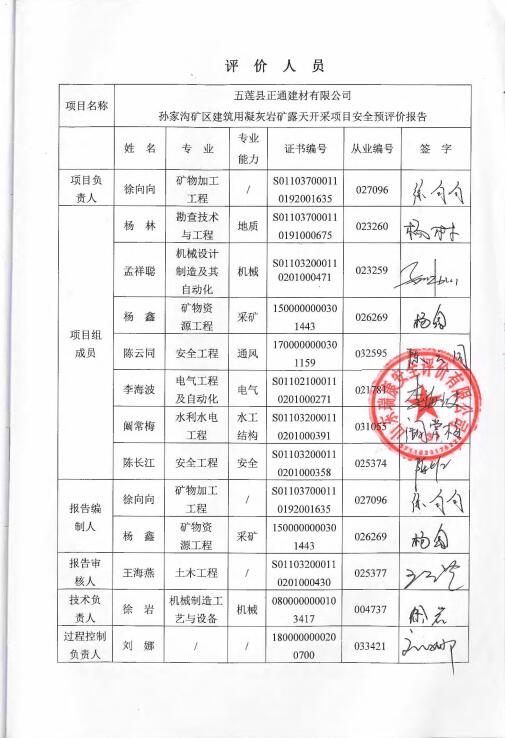 评价人员
项目名称
五莲县正通建材有限公司
孙家沟矿区建筑用凝灰岩矿露天开采项目安全预评价报告
姓 名 专 业 专业能力 证书编号 从业编号 签 字
项目负责人 徐向向 矿物加工工程 / S011037000110192001635 027096 徐向向
项目组成员
杨 林 勘查技术与工程 地质 S011037000110191000675 023260 杨林
孟祥聪 机械设计制造及其自动化 机械 S011032000110201000471 023259
杨 鑫 矿物资源工程 采矿 1500000000301443 026269 杨鑫
陈云同 安全工程 通风 1700000000301159 032595 陈云同
李海波 电气工程及自动化 电气 S011021000110201000271 021781 李海波
阚常梅 水利水电工程 水工结构 S011032000110201000391 031055 阚常梅
陈长江 安全工程 安全 S011032000110201000358 025374
报告编制人
徐向向 矿物加工工程 / S011037000110192001635 027096 徐向向
杨 鑫 矿物资源工程 采矿 1500000000301443 026269 杨鑫
报告审核人 王海燕 土木工程 / S011032000110201000430 025377
技术负责人 徐 岩 机械制造工艺与设备 机械 0800000000103417 004737 徐岩
过程控制负责人 刘 娜 / / 1800000000200700 033421 刘娜
山东瑞康安全评价有限公司